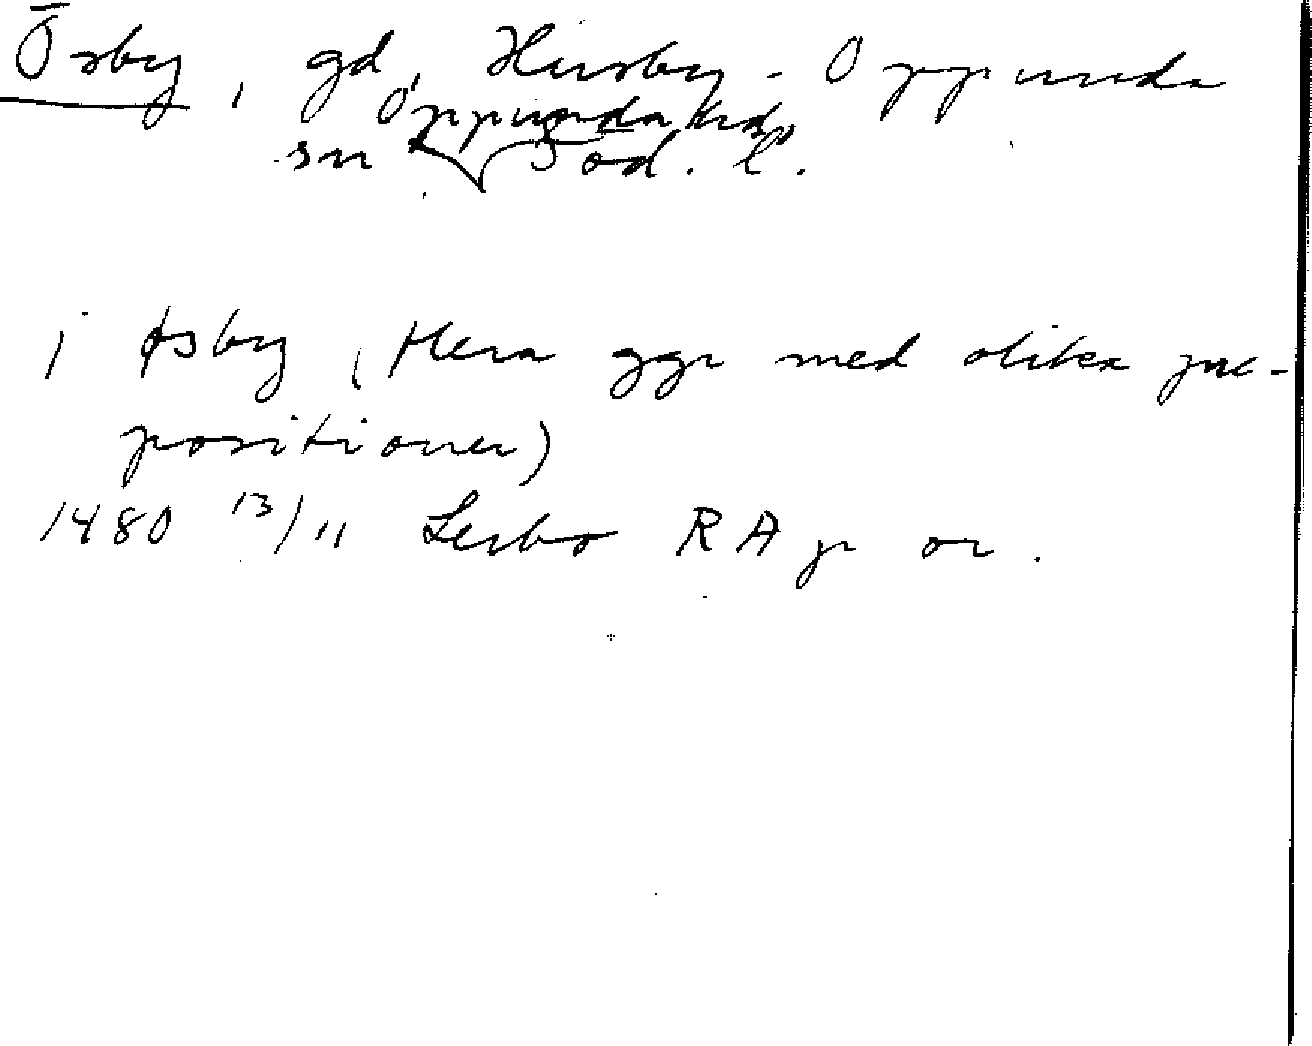 Ösby, gd, Husby-Oppunda
Oppunda hd,
sn Söd. l.
j øsby (flera ggr med olika pre-
positioner)
1480 13/11 Lerbo RA p or.